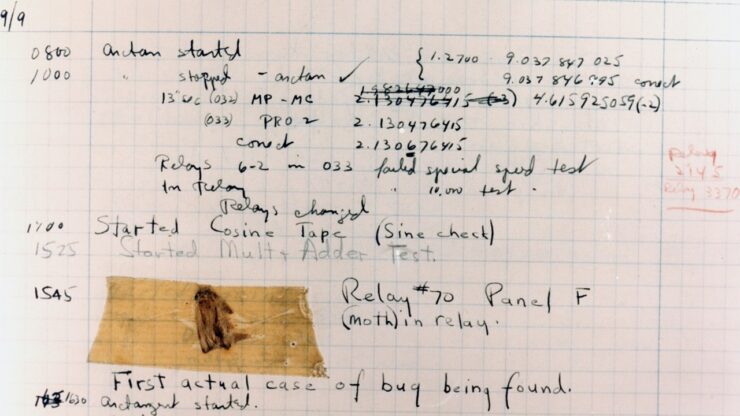 9/9
0800 arctan started { 1.2700 9.037 847 025
1000 " stopped - arctan ✓ 9.037 846 995 conect
13"sec (032) MP - MC 1.982647000 2.130476415 (-3) 4.615925059(-2)
(033) PRO 2 2.130476415
conect 2.130676415
Relays 6-2 in 033 failed special speed test
In Relay " 10.000 test .
Relays changed
Relay
2145
Relay 3370
1700 Started Cosine Tape (Sine check)
1525 Started Mult + Adder Test.
1545 Relay #70 Panel F
(moth) in relay.
First actual case of bug being found.
1630 arctangent started.